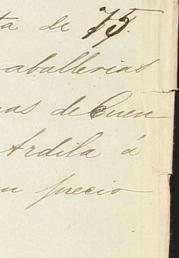 ta de 75.
aballerias
as de Cuen
Ardila á
precio